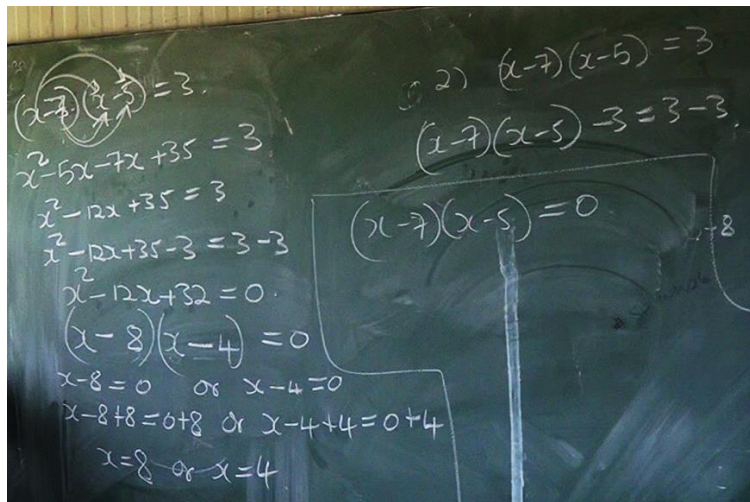 (x-7)(x-5) = 3.
x²-5x-7x+35 = 3
x²-12x+35 = 3
x²-12x+35-3 = 3-3
x²-12x+32 = 0.
(x-8)(x-4) = 0
x-8=0 or x-4=0
x-8+8=0+8 or x-4+4=0+4
x=8 or x=4
2) (x-7)(x-5) = 3
(x-7)(x-5)-3=3-3.
(x-7)(x-5)=0
+8